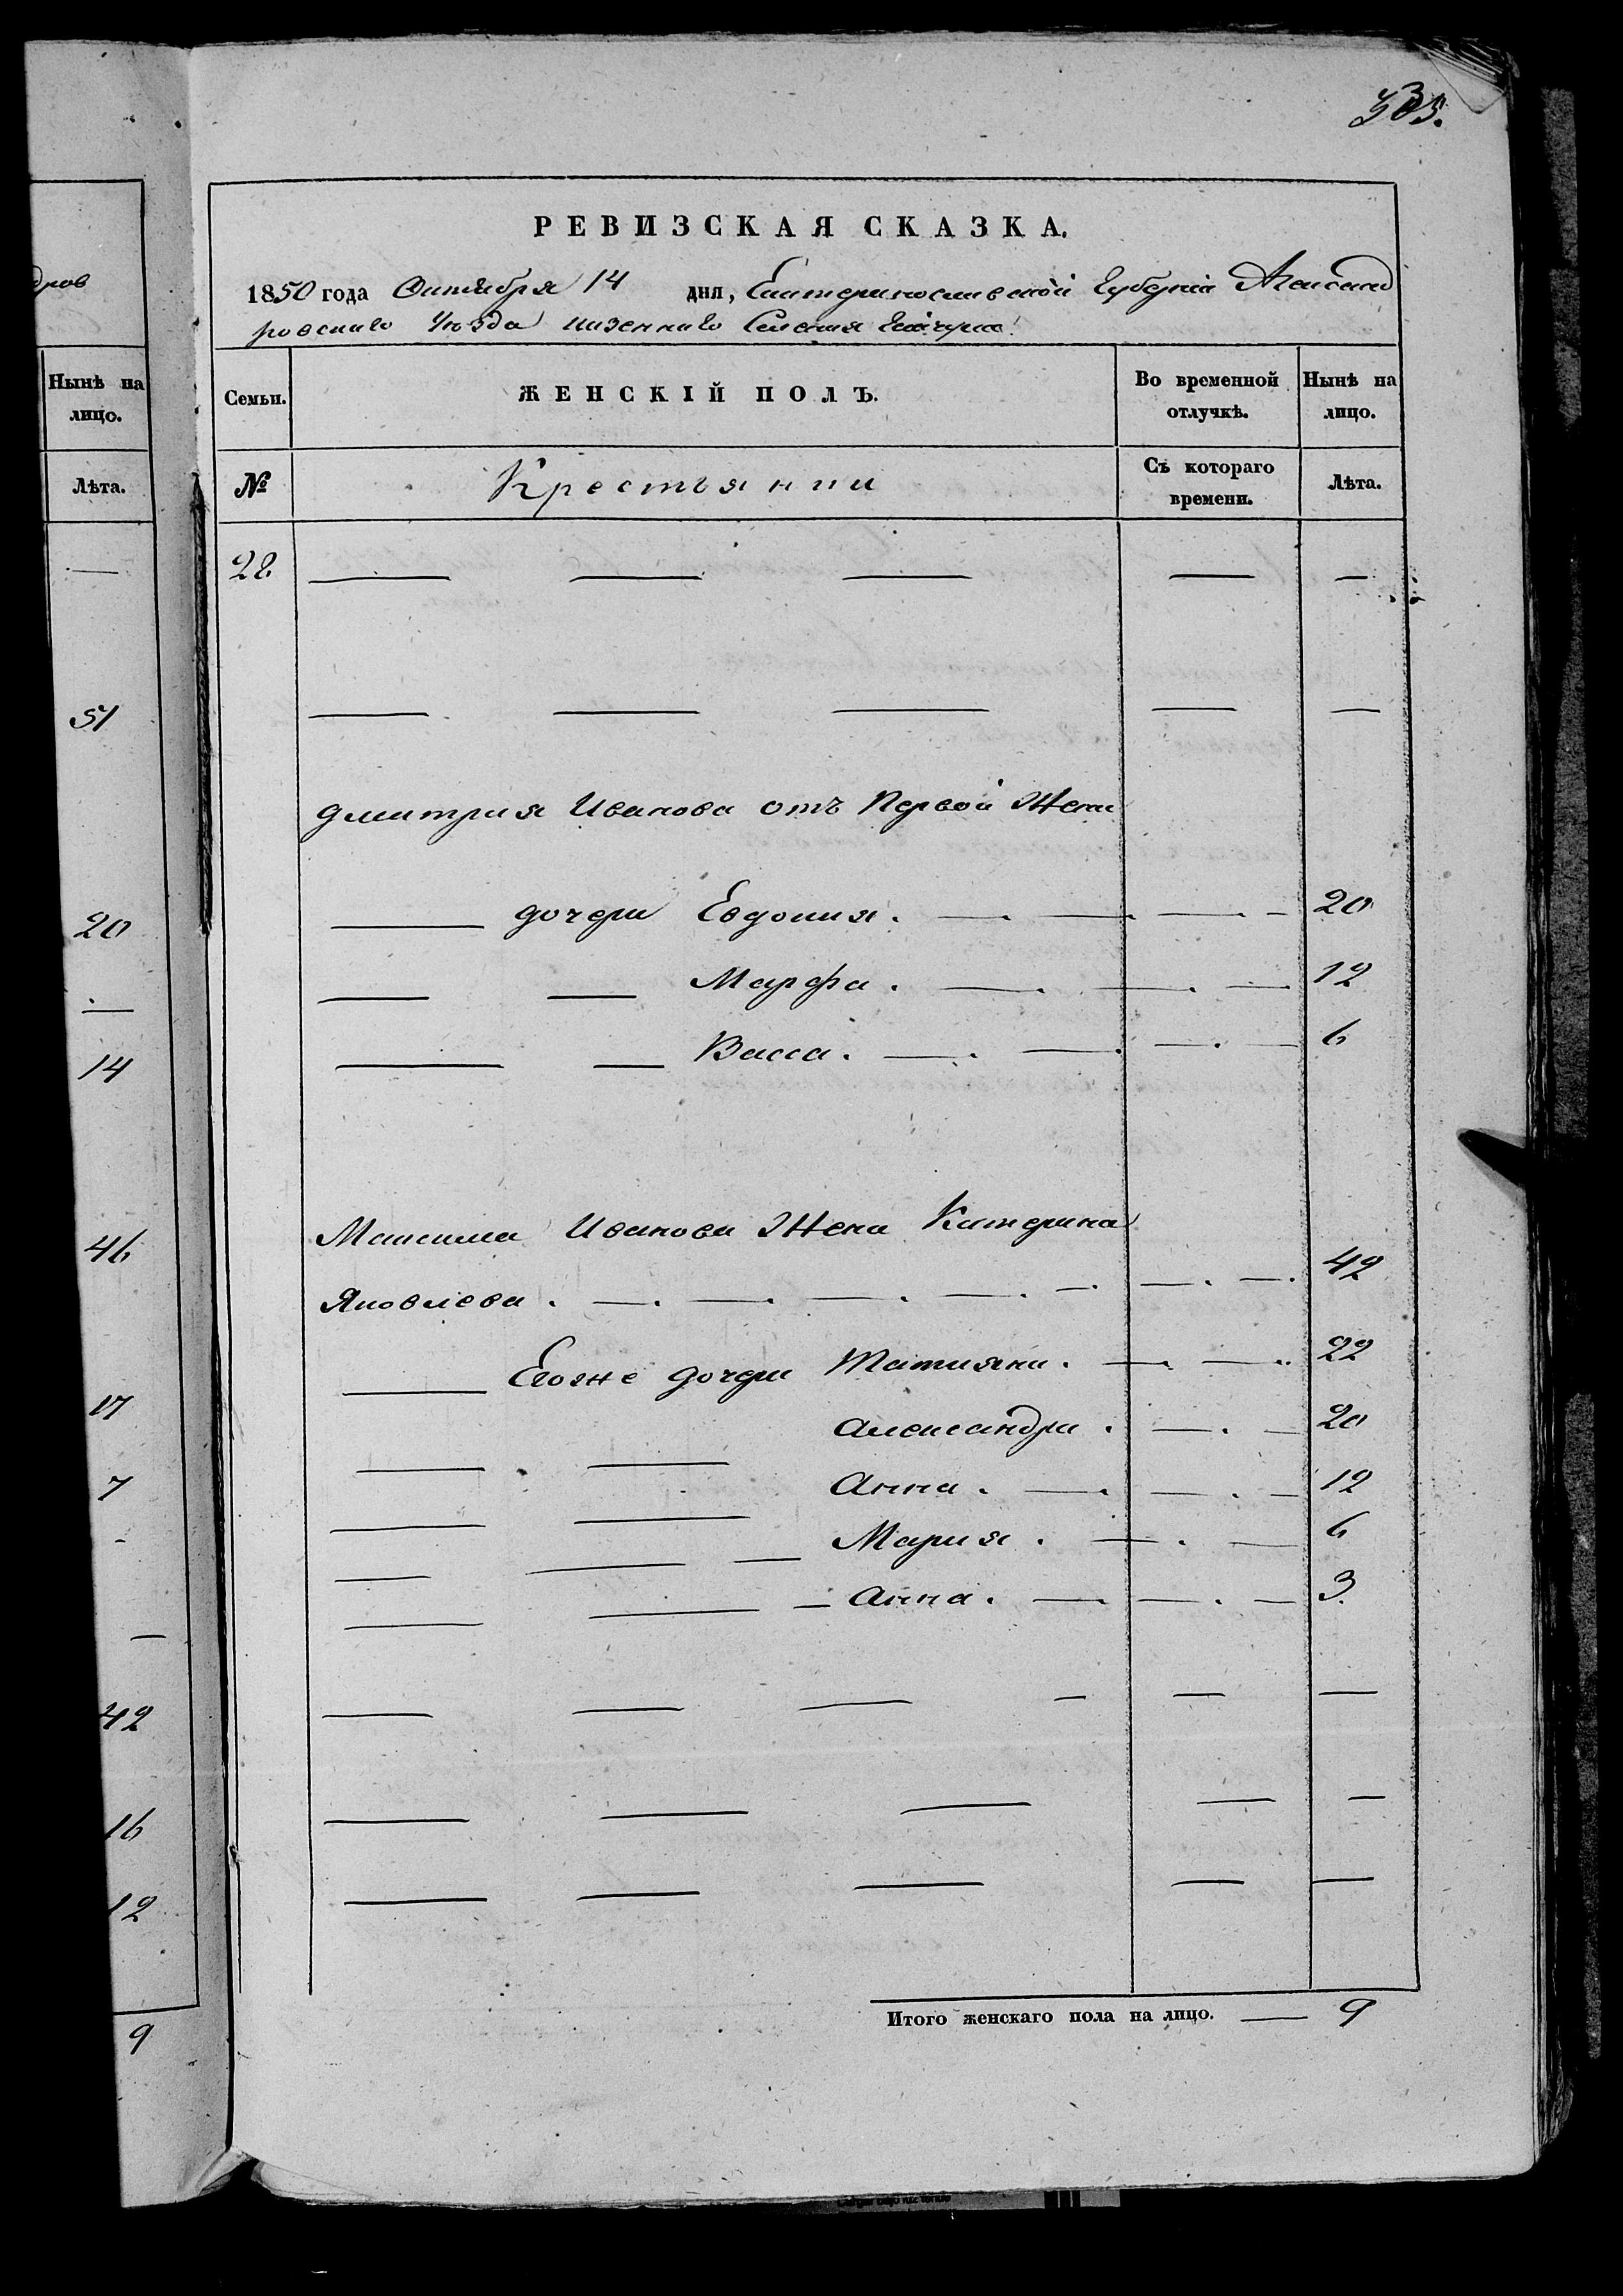 335.
дров
Нынѣ на
лицо.
Лѣта.
51
20
14
46
17
7
42
16
12
9
РЕВИЗСКАЯ СКАЗКА.
1850 года Октября 14 дня, Екатеринославской Губерніи Александ
ровскаго Уѣзда казеннаго Селения
Семьи.
ЖЕНСКІЙ ПОЛЪ.
Во временной
отлучкѣ.
Нынѣ на
лицо.
№
Крестьянки
Съ котораго
времени.
Лѣта.
28
Дмитрия Иванова отъ Первой Жены
дочери Евдокия. 20
Марфа. 12
Васса. 6
Максима Иванова Жена Катерина
Яковлева. 42
Егоже дочери Татияна. 22
Александра. 20
Анна. 12
Мария. 6
Анна. 3
Итого женскаго пола на лицо. 9